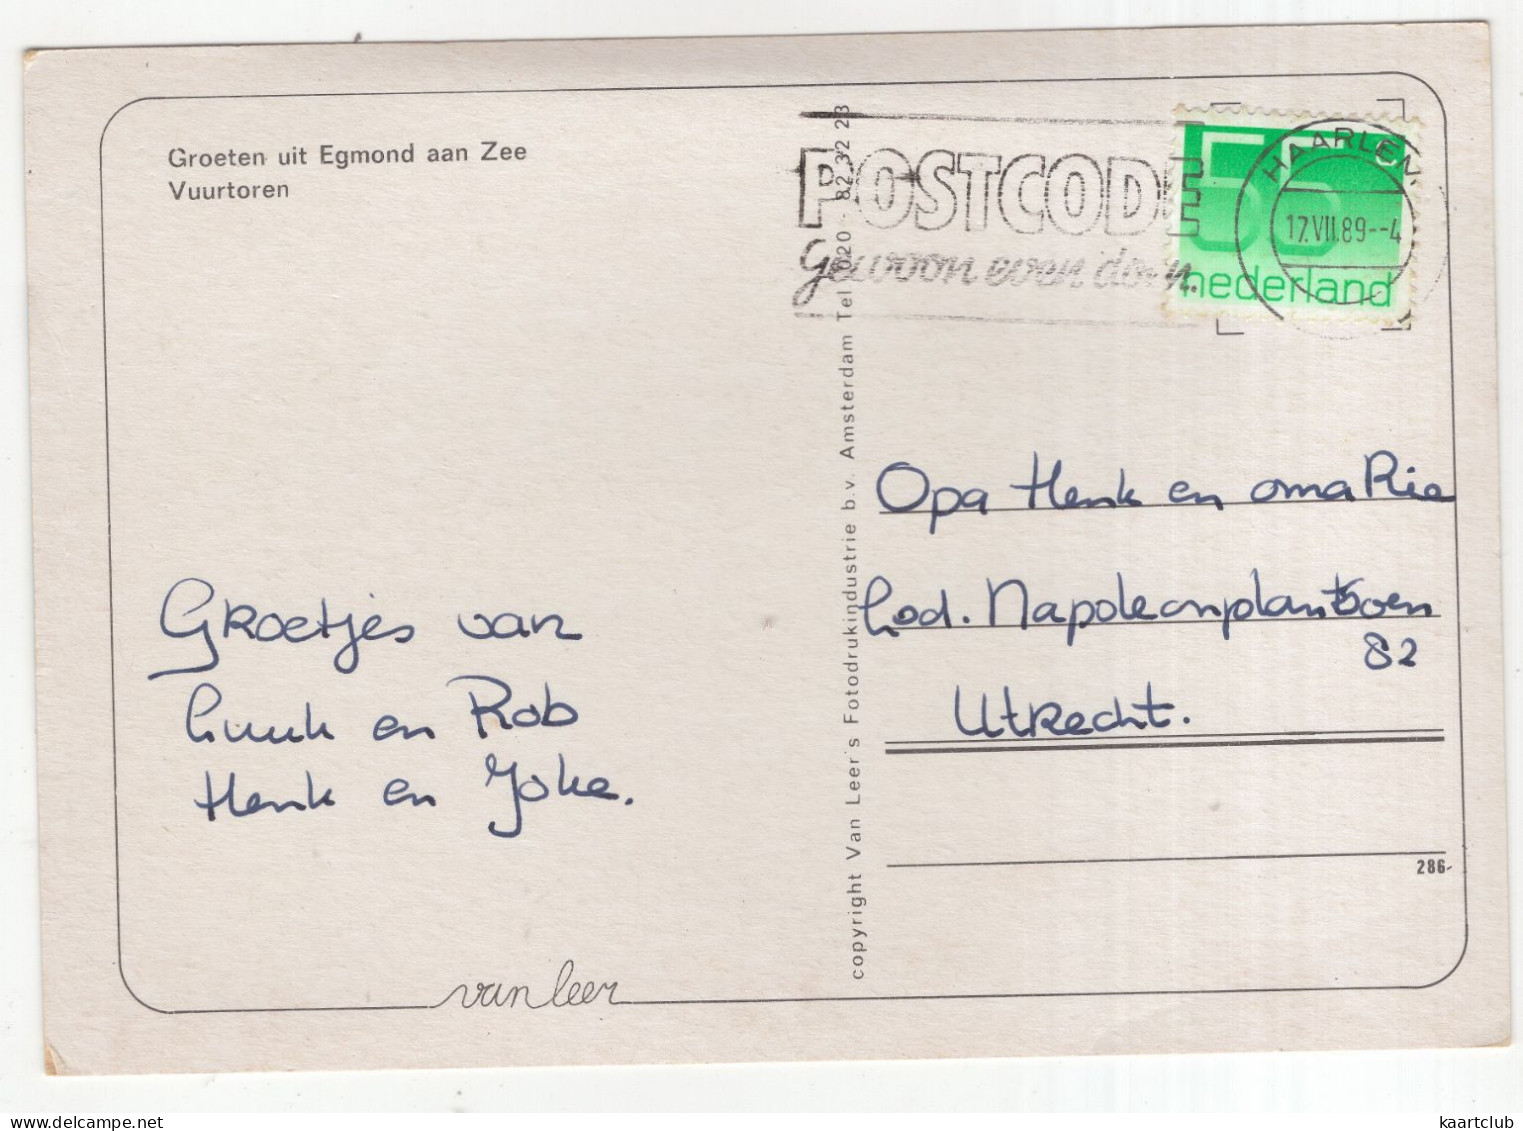 Groeten uit Egmond aan Zee
Vuurtoren
POSTCODE
Gewoon even doen.
55 c
nederland
HAARLEM
17.VII.89--4
copyright Van Leer's Fotodrukindustrie b.v. Amsterdam Tel 020 - 82 32 23
Opa Henk en oma Rie
Lod. Napoleonplantsoen
82
Utrecht.
Groetjes van
Luuk en Rob
Henk en Joke.
286-
van leer
kaartclub